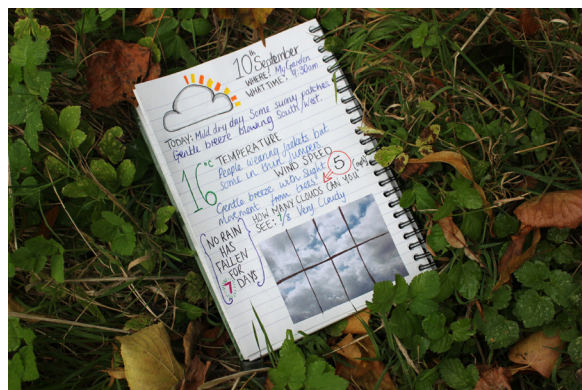 10th September
WHERE: My Garden
WHAT TIME: 9:30am
TODAY: Mild dry day. Some sunny patches
Gentle breeze blowing South/West.
16°C TEMPERATURE
People wearing jackets but
some in thin jumpers
WIND SPEED 5 mph
Gentle breeze with slight
movement from trees.
HOW MANY CLOUDS CAN YOU
SEE? 7/8 Very Cloudy
NO RAIN
HAS
FALLEN
FOR
7 DAYS